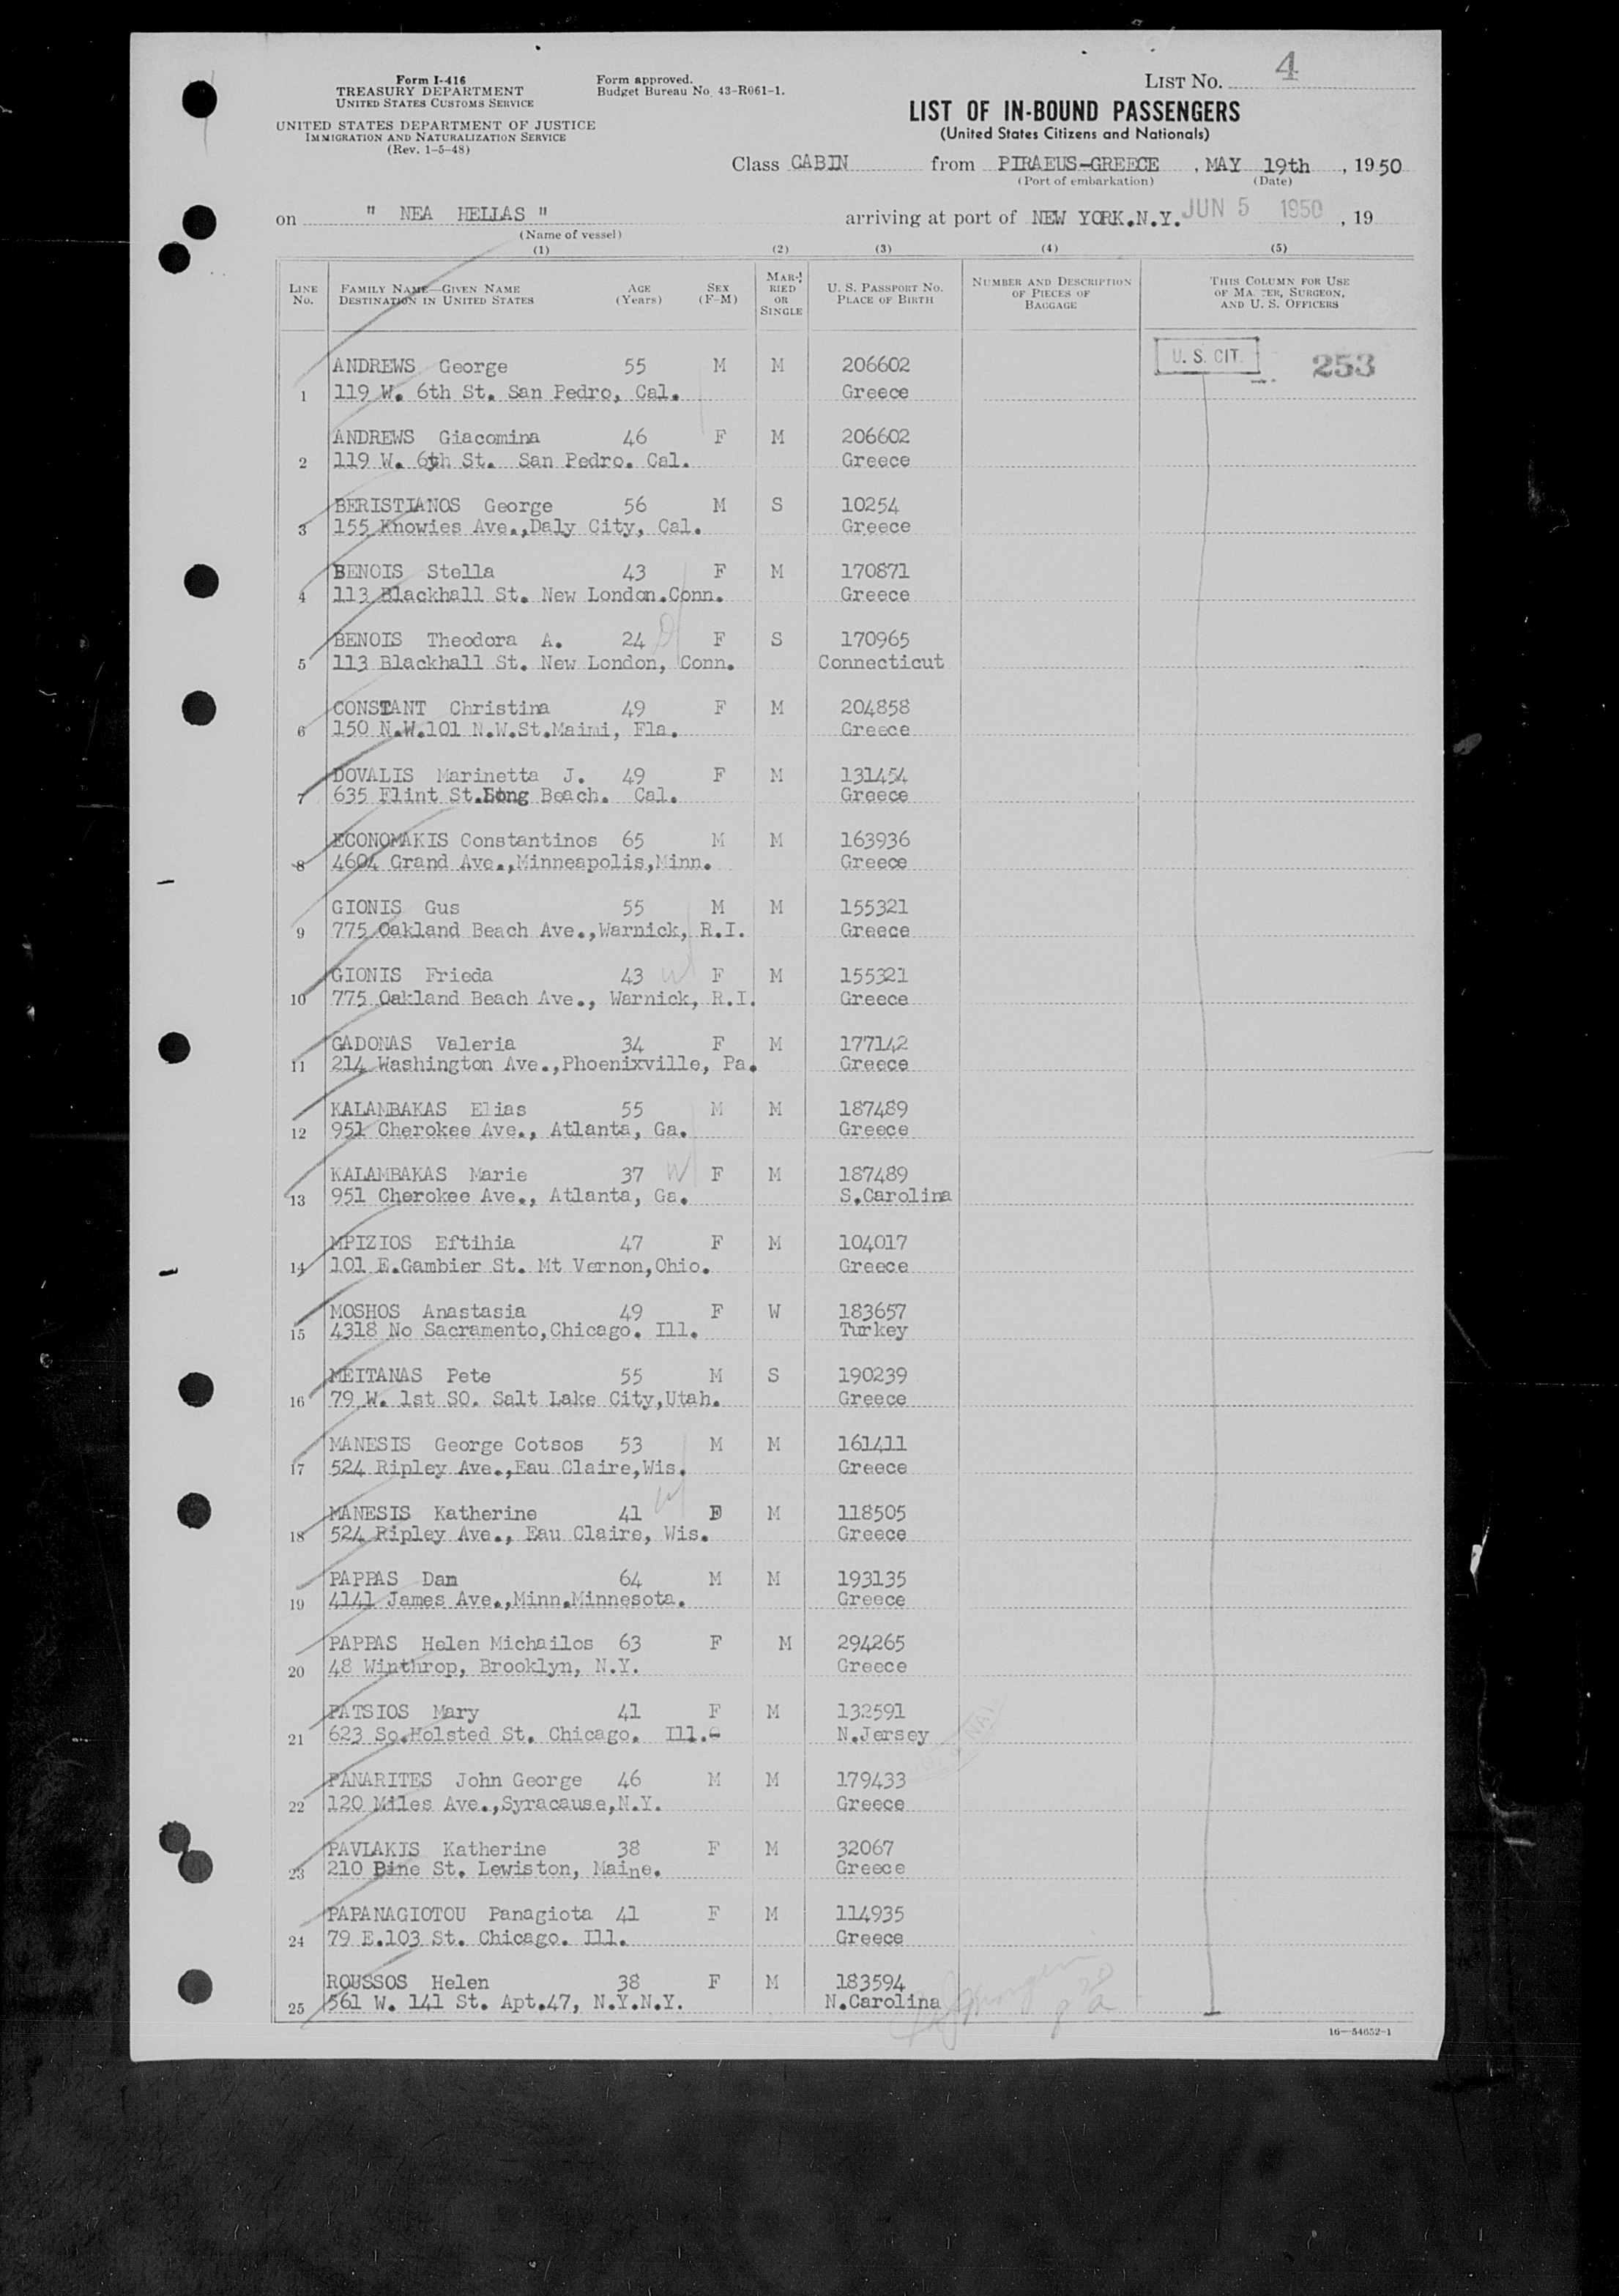 Form I-416
TREASURY DEPARTMENT
UNITED STATES CUSTOMS SERVICE
UNITED STATES DEPARTMENT OF JUSTICE
IMMIGRATION AND NATURALIZATION SERVICE
(Rev. 1-5-48)
Form approved.
Budget Bureau No. 43-R061-1.
LIST NO. 4
LIST OF IN-BOUND PASSENGERS
(United States Citizens and Nationals)
Class CABIN from PIRAEUS-GREECE , MAY 19th , 1950
(Port of embarkation) (Date)
on " NEA HELLAS " arriving at port of NEW YORK.N.Y. JUN 5 1950 , 19
(Name of vessel)
(1) (2) (3) (4) (5)
LINE No. FAMILY NAME—GIVEN NAME DESTINATION IN UNITED STATES AGE (Years) SEX (F-M) MARRIED OR SINGLE U. S. PASSPORT NO. PLACE OF BIRTH NUMBER AND DESCRIPTION OF PIECES OF BAGGAGE THIS COLUMN FOR USE OF MASTER, SURGEON, AND U. S. OFFICERS
ANDREWS George 55 M M 206602 U. S. CIT. 253
1 119 W. 6th St. San Pedro, Cal. Greece
ANDREWS Giacomina 46 F M 206602
2 119 W. 6th St. San Pedro. Cal. Greece
BERISTIANOS George 56 M S 10254
3 155 Knowies Ave.,Daly City, Cal. Greece
BENOIS Stella 43 F M 170871
4 113 Blackhall St. New London.Conn. Greece
BENOIS Theodora A. 24 F S 170965
5 113 Blackhall St. New London, Conn. Connecticut
CONSTANT Christina 49 F M 204858
6 150 N.W.101 N.W.St.Maimi, Fla. Greece
DOVALIS Marinetta J. 49 F M 131454
7 635 Flint St.Long Beach. Cal. Greece
ECONOMAKIS Constantinos 65 M M 163936
8 4604 Grand Ave.,Minneapolis,Minn. Greece
GIONIS Gus 55 M M 155321
9 775 Oakland Beach Ave.,Warnick, R.I. Greece
GIONIS Frieda 43 F M 155321
10 775 Oakland Beach Ave., Warnick, R.I. Greece
GADONAS Valeria 34 F M 177142
11 214 Washington Ave.,Phoenixville, Pa. Greece
KALAMBAKAS Elias 55 M M 187489
12 951 Cherokee Ave., Atlanta, Ga. Greece
KALAMBAKAS Marie 37 F M 187489
13 951 Cherokee Ave., Atlanta, Ga. S.Carolina
MPIZIOS Eftihia 47 F M 104017
14 101 E.Gambier St. Mt Vernon,Ohio. Greece
MOSHOS Anastasia 49 F W 183657
15 4318 No Sacramento,Chicago. Ill. Turkey
MEITANAS Pete 55 M S 190239
16 79 W. 1st SO. Salt Lake City,Utah. Greece
MANESIS George Cotsos 53 M M 161411
17 524 Ripley Ave.,Eau Claire,Wis. Greece
MANESIS Katherine 41 F M 118505
18 524 Ripley Ave., Eau Claire, Wis. Greece
PAPPAS Dan 64 M M 193135
19 4141 James Ave.,Minn.Minnesota. Greece
PAPPAS Helen Michailos 63 F M 294265
20 48 Winthrop, Brooklyn, N.Y. Greece
PATSIOS Mary 41 F M 132591
21 623 So.Holsted St. Chicago. Ill. N.Jersey
PANARITES John George 46 M M 179433
22 120 Miles Ave.,Syracause,N.Y. Greece
PAVLAKIS Katherine 38 F M 32067
23 210 Pine St. Lewiston, Maine. Greece
PAPANAGIOTOU Panagiota 41 F M 114935
24 79 E.103 St. Chicago. Ill. Greece
ROUSSOS Helen 38 F M 183594
25 561 W. 141 St. Apt.47, N.Y.N.Y. N.Carolina
16—54652-1